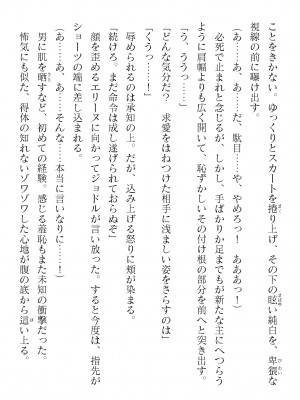 ことをきかない。ゆっくりとスカートを捲り上げ、その下の眩い純白を、卑猥な
視線の前に曝け出す。
(あ……あ、あ……だ、駄目……や、やめろっ！　あああっ！)
必死で止まれと念じるが、しかし、手ばかりか足までもが新たな主にへつらう
ように肩幅よりも広く開いて、恥ずかしいその付け根の部分を前へと突き出す。
(う、ううっ……)
「どんな気分だ？　求愛をはねつけた相手に浅ましい姿をさらすのは」
「くうっ……！」
辱められるのは承知の上。だが、込み上げる怒りに頬が染まる。
「続けろ。まだ命令は成し遂げられておらぬぞ」
顔を歪めるエリーヌに向かってジョドルが言い放つ。すると今度は、指先が
ショーツの端に差し込まれる。
(あ……あ、あ……そんな……本当に言いなりに……！)
男に肌を晒すなど、初めての経験。感じる羞恥もまた未知の衝撃だった。
怖気にも似た、得体の知れないゾワゾワした心地が腹の底から這い上る。